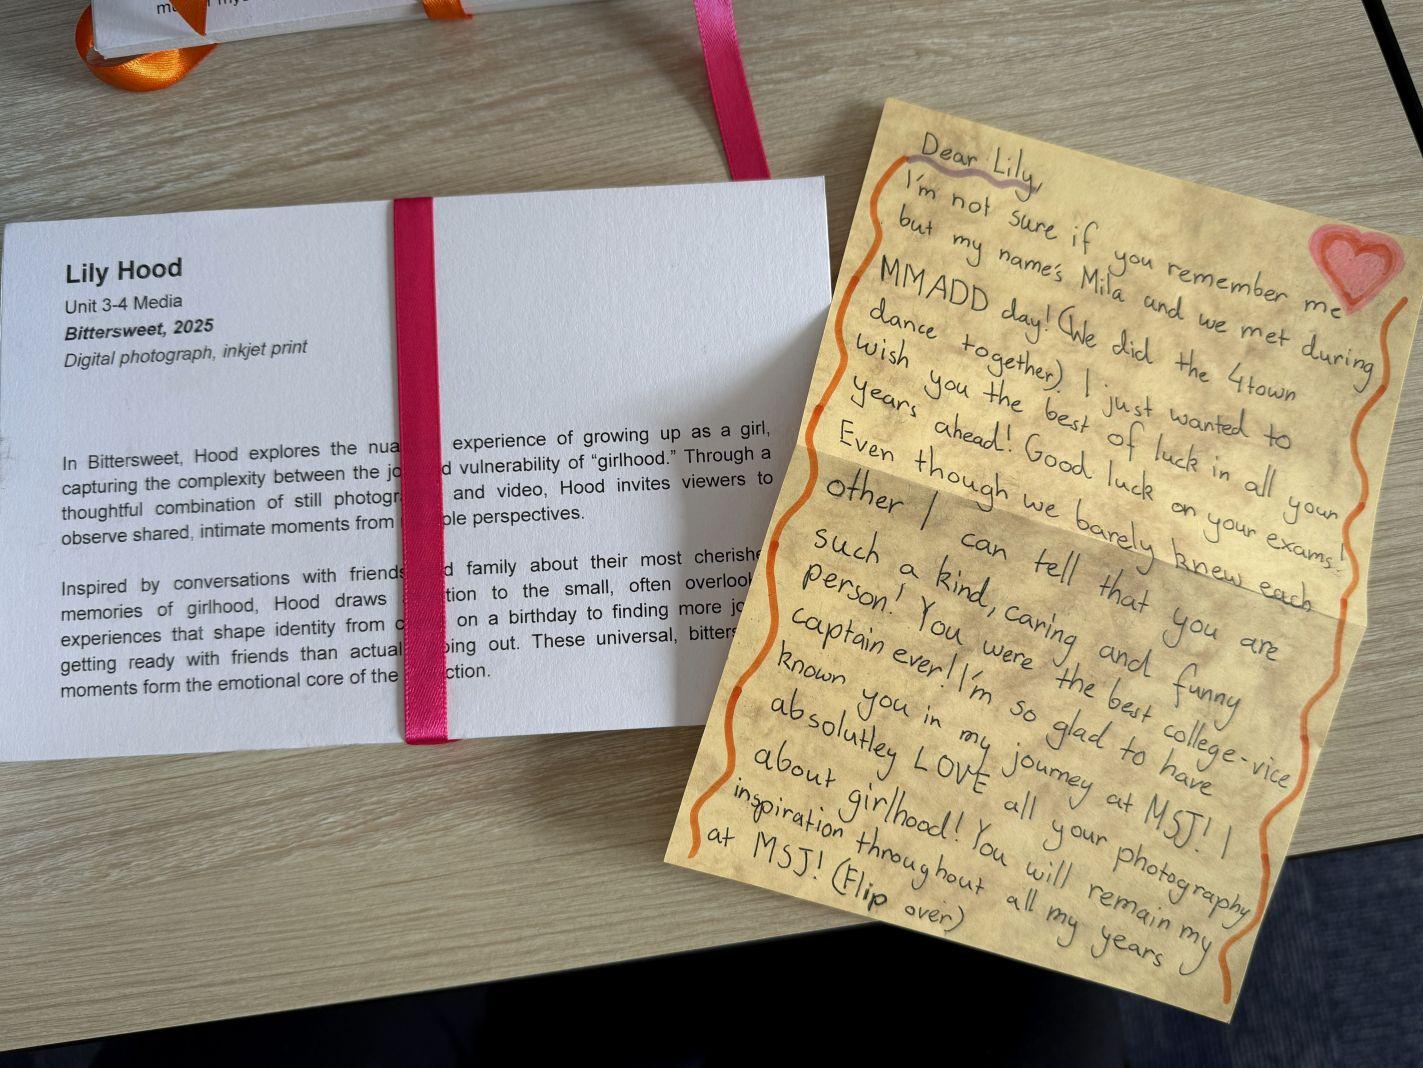 Lily Hood
Unit 3-4 Media
Bittersweet, 2025
Digital photograph, inkjet print
In Bittersweet, Hood explores the experience of growing up as a girl,
capturing the complexity between the vulnerability of “girlhood.” Through a
thoughtful combination of still and video, Hood invites viewers to
observe shared, intimate moments from perspectives.
Inspired by conversations with friends family about their most
memories of girlhood, Hood draws to the small, often
experiences that shape identity from on a birthday to finding more
getting ready with friends than out. These universal,
moments form the emotional core of the
Dear Lily,
I'm not sure if you remember me
but my name's Mila and we met during
MMADD day! (We did the 4town
dance together). I just wanted to
wish you the best of luck in all your
years ahead! Good luck on your exams!
Even though we barely knew each
other I can tell that you are
such a kind, caring and funny
person! You were the best college-vice
captain ever! I'm so glad to have
known you in my journey at MSJ! I
absolutley LOVE all your photography
about girlhood! You will remain my
inspiration throughout all my years
at MSJ! (Flip over)